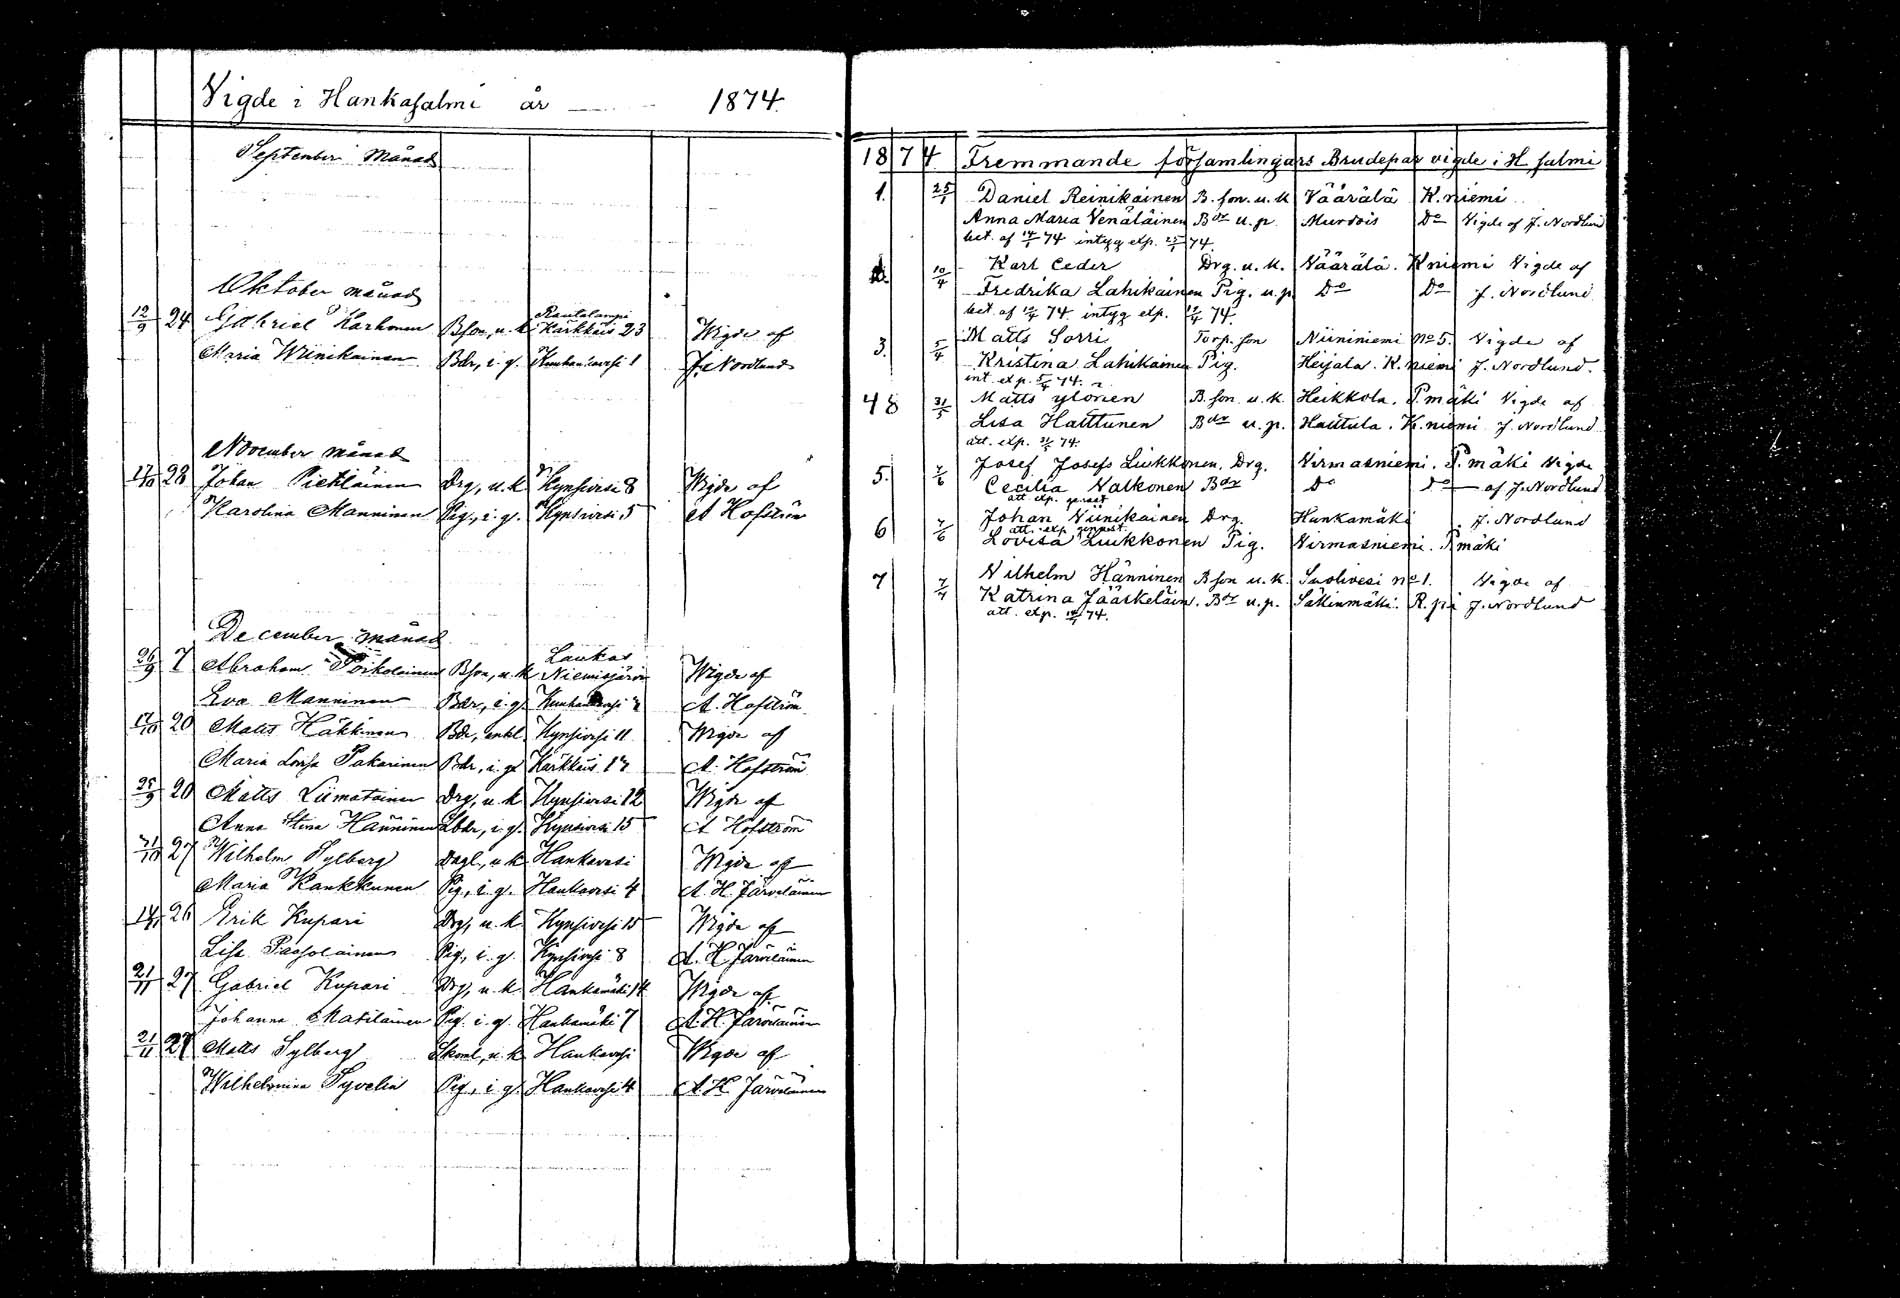 Vigde i Hankasalmi år 1874.
September månad
Oktober månad
12/9 24 Gabriel Karhonen Bson, u.k. Rautalampi Kärkkäis 23 Wigde af
Maria Wiinikainen Bdr, i.g. 1 J. Nordlund
November månad
17/10 28 Johan Pietiläinen Drg, u.k. Kynsivesi 8 Wigde af
Karolina Manninen Pig, i.g. Kynsivesi 5 A Hofström
December månad
26/9 7 Abraham Poikolainen Bson, u.k. Laukas Niemisjärvi Wigde af
Eva Manninen Bdr, i.g. A. Hofström
17/10 20 Matts Häkkinen Bdr, enkl. Kynsivesi 11 Wigde af
Maria Lovisa Pakarinen Bdr, i.g. Kärkkäis 17 A. Hofström
25/9 20 Matts Liimatainen Drg, u.k. Kynsivesi 12 Wigde af
Anna Stina Hänninen i.g. Kynsivesi 15 A Hofström
31/10 27 Wilhelm Sylberg Dagl, u.k. Hankavesi Wigde af
Maria Kankkunen Pig, i.g. Hankavesi 4 A. H. Järveläinen
14/11 26 Erik Kupari Drg, u.k. Kynsivesi 15 Wigde af
Lisa Paasolainen Pig, i.g. Kynsivesi 8 A. H. Järveläinen
21/11 27 Gabriel Kupari Drg, u.k. Hankamäki 14 Wigde af
Johanna Matilainen Pig. i.g. Hankamäki 7 A. H. Järveläinen
21/11 27 Matts Sylberg u.k. Hankavesi Wigde af
Wilhelmina Syvelin Pig, i.g. Hankavesi 4 A. H. Järveläinen
1874 Fremmande församlingars Brudepar vigde i H salmi
1. 25/1 Daniel Reinikainen B. son. u.k Väärälä K.niemi
Anna Maria Venäläinen Bdr u.p. Murtois Do Vigde af J. Nordlund
bet. af 14/1 74 intyg exp. 25/1 74.
10/4 Karl Ceder Drg. u.k. Väärälä. K niemi Vigde af
Fredrika Lahikainen Pig. u.p Do Do J. Nordlund
bet. af 74. intyg exp. 74.
3. 5/4 Matts Sorri Torp. son Niininiemi No 5. Vigde af
Kristina Lahikainen Pig. Heijala. K.niemi J. Nordlund.
int. exp. 5/4 74.
48 31/5 Matts Ylönen B. son u.k. Heikkola. P.mäki Vigde af
Lisa Halttunen Bdr u.p. Hautula. K.niemi J. Nordlund
att. exp. 31/5 74.
5. 7/6 Josef Josefs Liukkonen. Drg. Virmasniemi. P.mäki Vigde
Cecilia Valkonen Bdr Do Do af J. Nordlund
att exp. genast
6 7/6 Johan Niinikainen Drg. Hankamäki J. Nordlund
att. exp genast.
Lovisa Liukkonen Pig. Virmasniemi. P.mäki
7 Vilhelm Hänninen B son u.k. Suolivesi no 1. Vigde af
Katrina Jääskeläin. Bdr u.p. Säkinmäki. R.pi J. Nordlund
att. exp. 74.